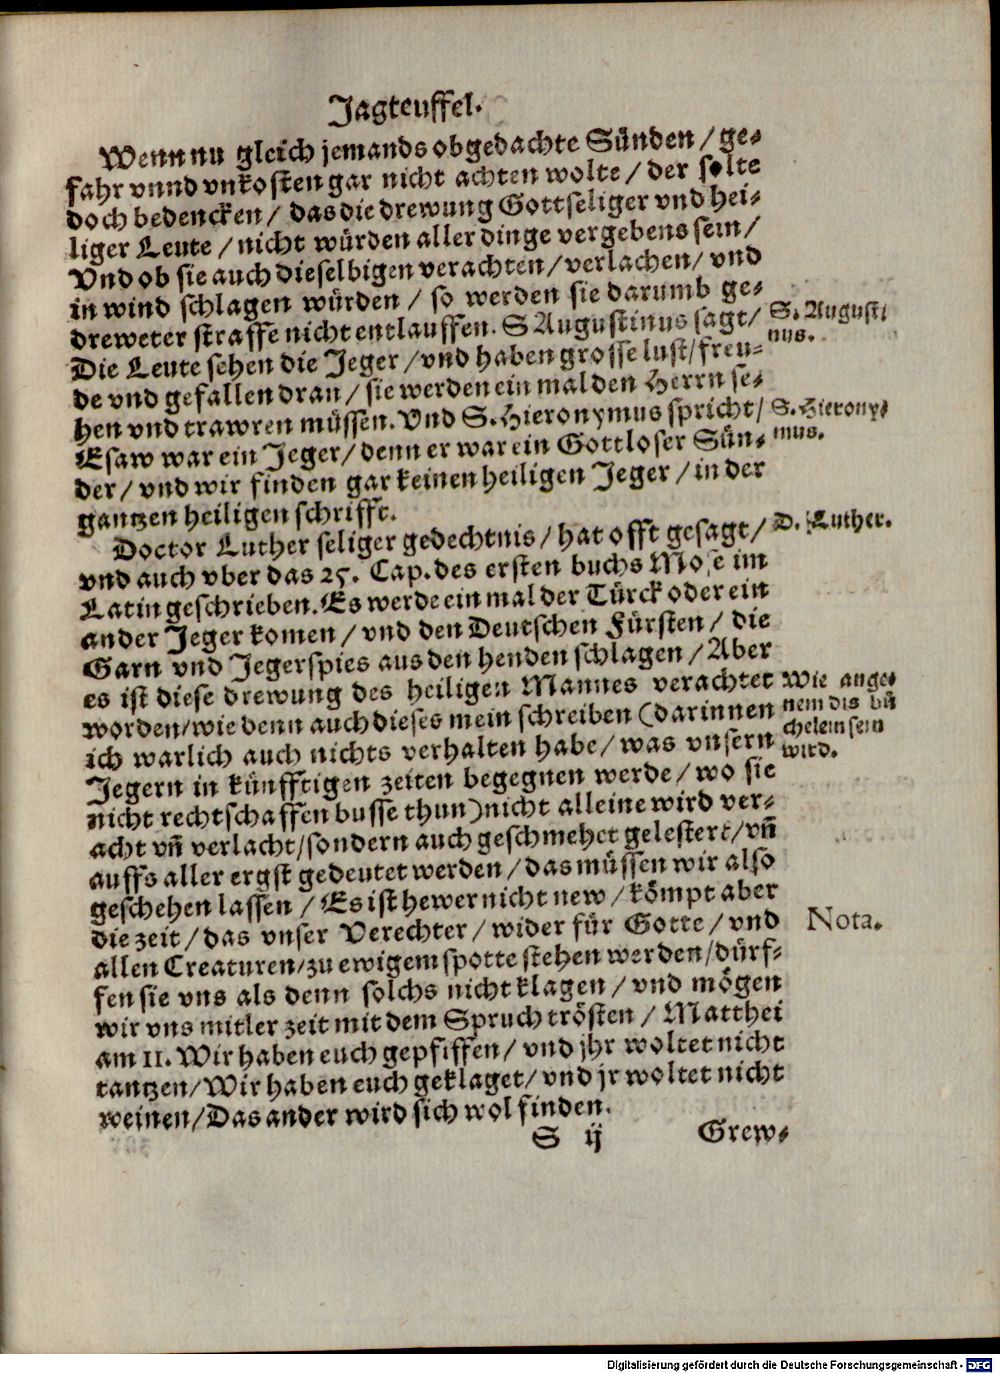 Jagteuffel.
Wenn nu gleich jemands obgedachte Sünden / ge-
fahr vnnd vnkosten gar nicht achten wolte / der solte
doch bedencken / das die drewung Gottseliger vnd hei-
liger Leute / nicht würden aller dinge vergebens sein /
Vnd ob sie auch dieselbigen verachten / verlachen / vnd
in wind schlagen würden / so werden sie darumb ge-
dreweter straffe nicht entlauffen. S Augustinus sagt /
S. Augusti
nus.
Die Leute sehen die Jeger / vnd haben grosse lust / freu-
de vnd gefallen dran / sie werden ein mal den Herrn se-
hen vnd trawren müssen. Vnd S. Hieronymus spricht /
S. Hierony-
mus.
Esaw war ein Jeger / denn er war ein Gottloser Sün-
der / vnd wir finden gar keinen heiligen Jeger / in der
gantzen heiligen schrifft.
Doctor Luther seliger gedechtnis / hat offt gesagt /
D. Luther.
vnd auch vber das 25. Cap. des ersten buchs Mose im
Latin geschrieben. Es werde ein mal der Türck oder ein
ander Jeger komen / vnd den Deutschen Fürsten / die
Garn vnd Jegerspies aus den henden schlagen / Aber
es ist diese drewung des heiligen Mannes verachtet
Wie ange-
nem dis bü
chelein sein
wird.
worden / wie denn auch dieses mein schreiben (darinnen
ich warlich auch nichts verhalten habe / was vnsern
Jegern in künfftigen zeiten begegnen werde / wo sie
nicht rechtschaffen busse thun) nicht alleine wird ver-
acht vn̄ verlacht / sondern auch geschmehet gelestert / vn̄
auffs aller ergst gedeutet werden / das müssen wir also
geschehen lassen / Es ist hewer nicht new / kömpt aber
die zeit / das vnser Verechter / wider für Gotte / vnd
Nota.
allen Creaturen / zu ewigem spotte stehen werden / dürf-
fen sie vns als denn solchs nicht klagen / vnd mögen
wir vns mitler zeit mit dem Spruch trösten / Matthei
am 11. Wir haben euch gepfiffen / vnd jhr woltet nicht
tantzen / Wir haben euch geklaget / vnd jr woltet nicht
weinen / Das ander wird sich wol finden.
S ij Grew-
Digitalisierung gefördert durch die Deutsche Forschungsgemeinschaft - DFG